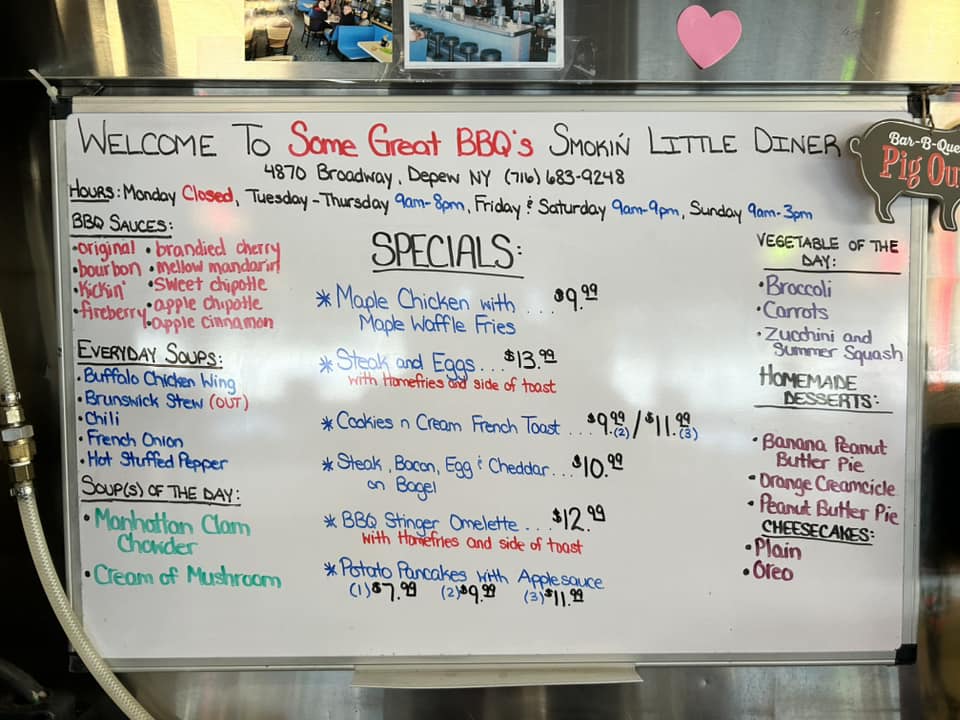 WELCOME TO Some Great BBQ's SMOKIN' LITTLE DINER
4870 Broadway, Depew NY (716) 683-9248
HOURS: Monday Closed, Tuesday-Thursday 9am-8pm, Friday & Saturday 9am-9pm, Sunday 9am-3pm
Bar-B-Que
Pig Ou
BBQ SAUCES:
•original •brandied cherry
•bourbon •mellow mandarin
•Kickin' •sweet chipotle
•fireberry •apple chipotle
•apple cinnamon
EVERYDAY SOUPS:
•Buffalo Chicken Wing
•Brunswick Stew (OUT)
•Chili
•French Onion
•Hot Stuffed Pepper
SOUP(S) OF THE DAY:
•Manhattan Clam
Chowder
•Cream of Mushroom
SPECIALS:
*Maple Chicken with ... $9.99
Maple Waffle Fries
*Steak and Eggs... $13.99
with Homefries and side of toast
*Cookies n Cream French Toast ... $9.99 (2) / $11.99 (3)
*Steak, Bacon, Egg & Cheddar... $10.99
on Bagel
*BBQ Stinger Omelette ... $12.99
with Homefries and side of toast
*Potato Pancakes with Applesauce
(1) $7.99 (2) $9.99 (3) $11.99
VEGETABLE OF THE
DAY:
•Broccoli
•Carrots
•Zucchini and
Summer Squash
HOMEMADE
DESSERTS:
•Banana Peanut
Butter Pie
•Orange Creamcicle
•Peanut Butter Pie
CHEESECAKES:
•Plain
•Oreo